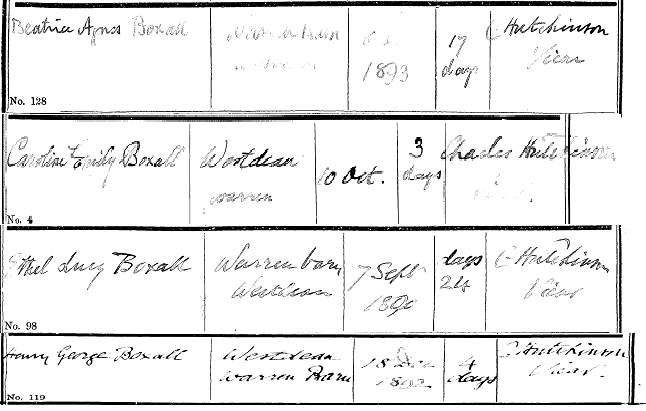 Beatrice Agnes Boxall
Warren Barn
1893
17
days
C Hutchinson
Vicar
No. 128
Caroline Emily Boxall
Westdean
warren
10 Oct.
3
days
Charles Hutchinson
No. 4
Ethel Lucy Boxall
Warren barn
Westdean
7 Sept
1890
days
24
C Hutchinson
Vicar
No. 98
Henry George Boxall
Westdean
Warren Barn
18 Dec
1892
4
days
C Hutchinson
Vicar.
No. 119